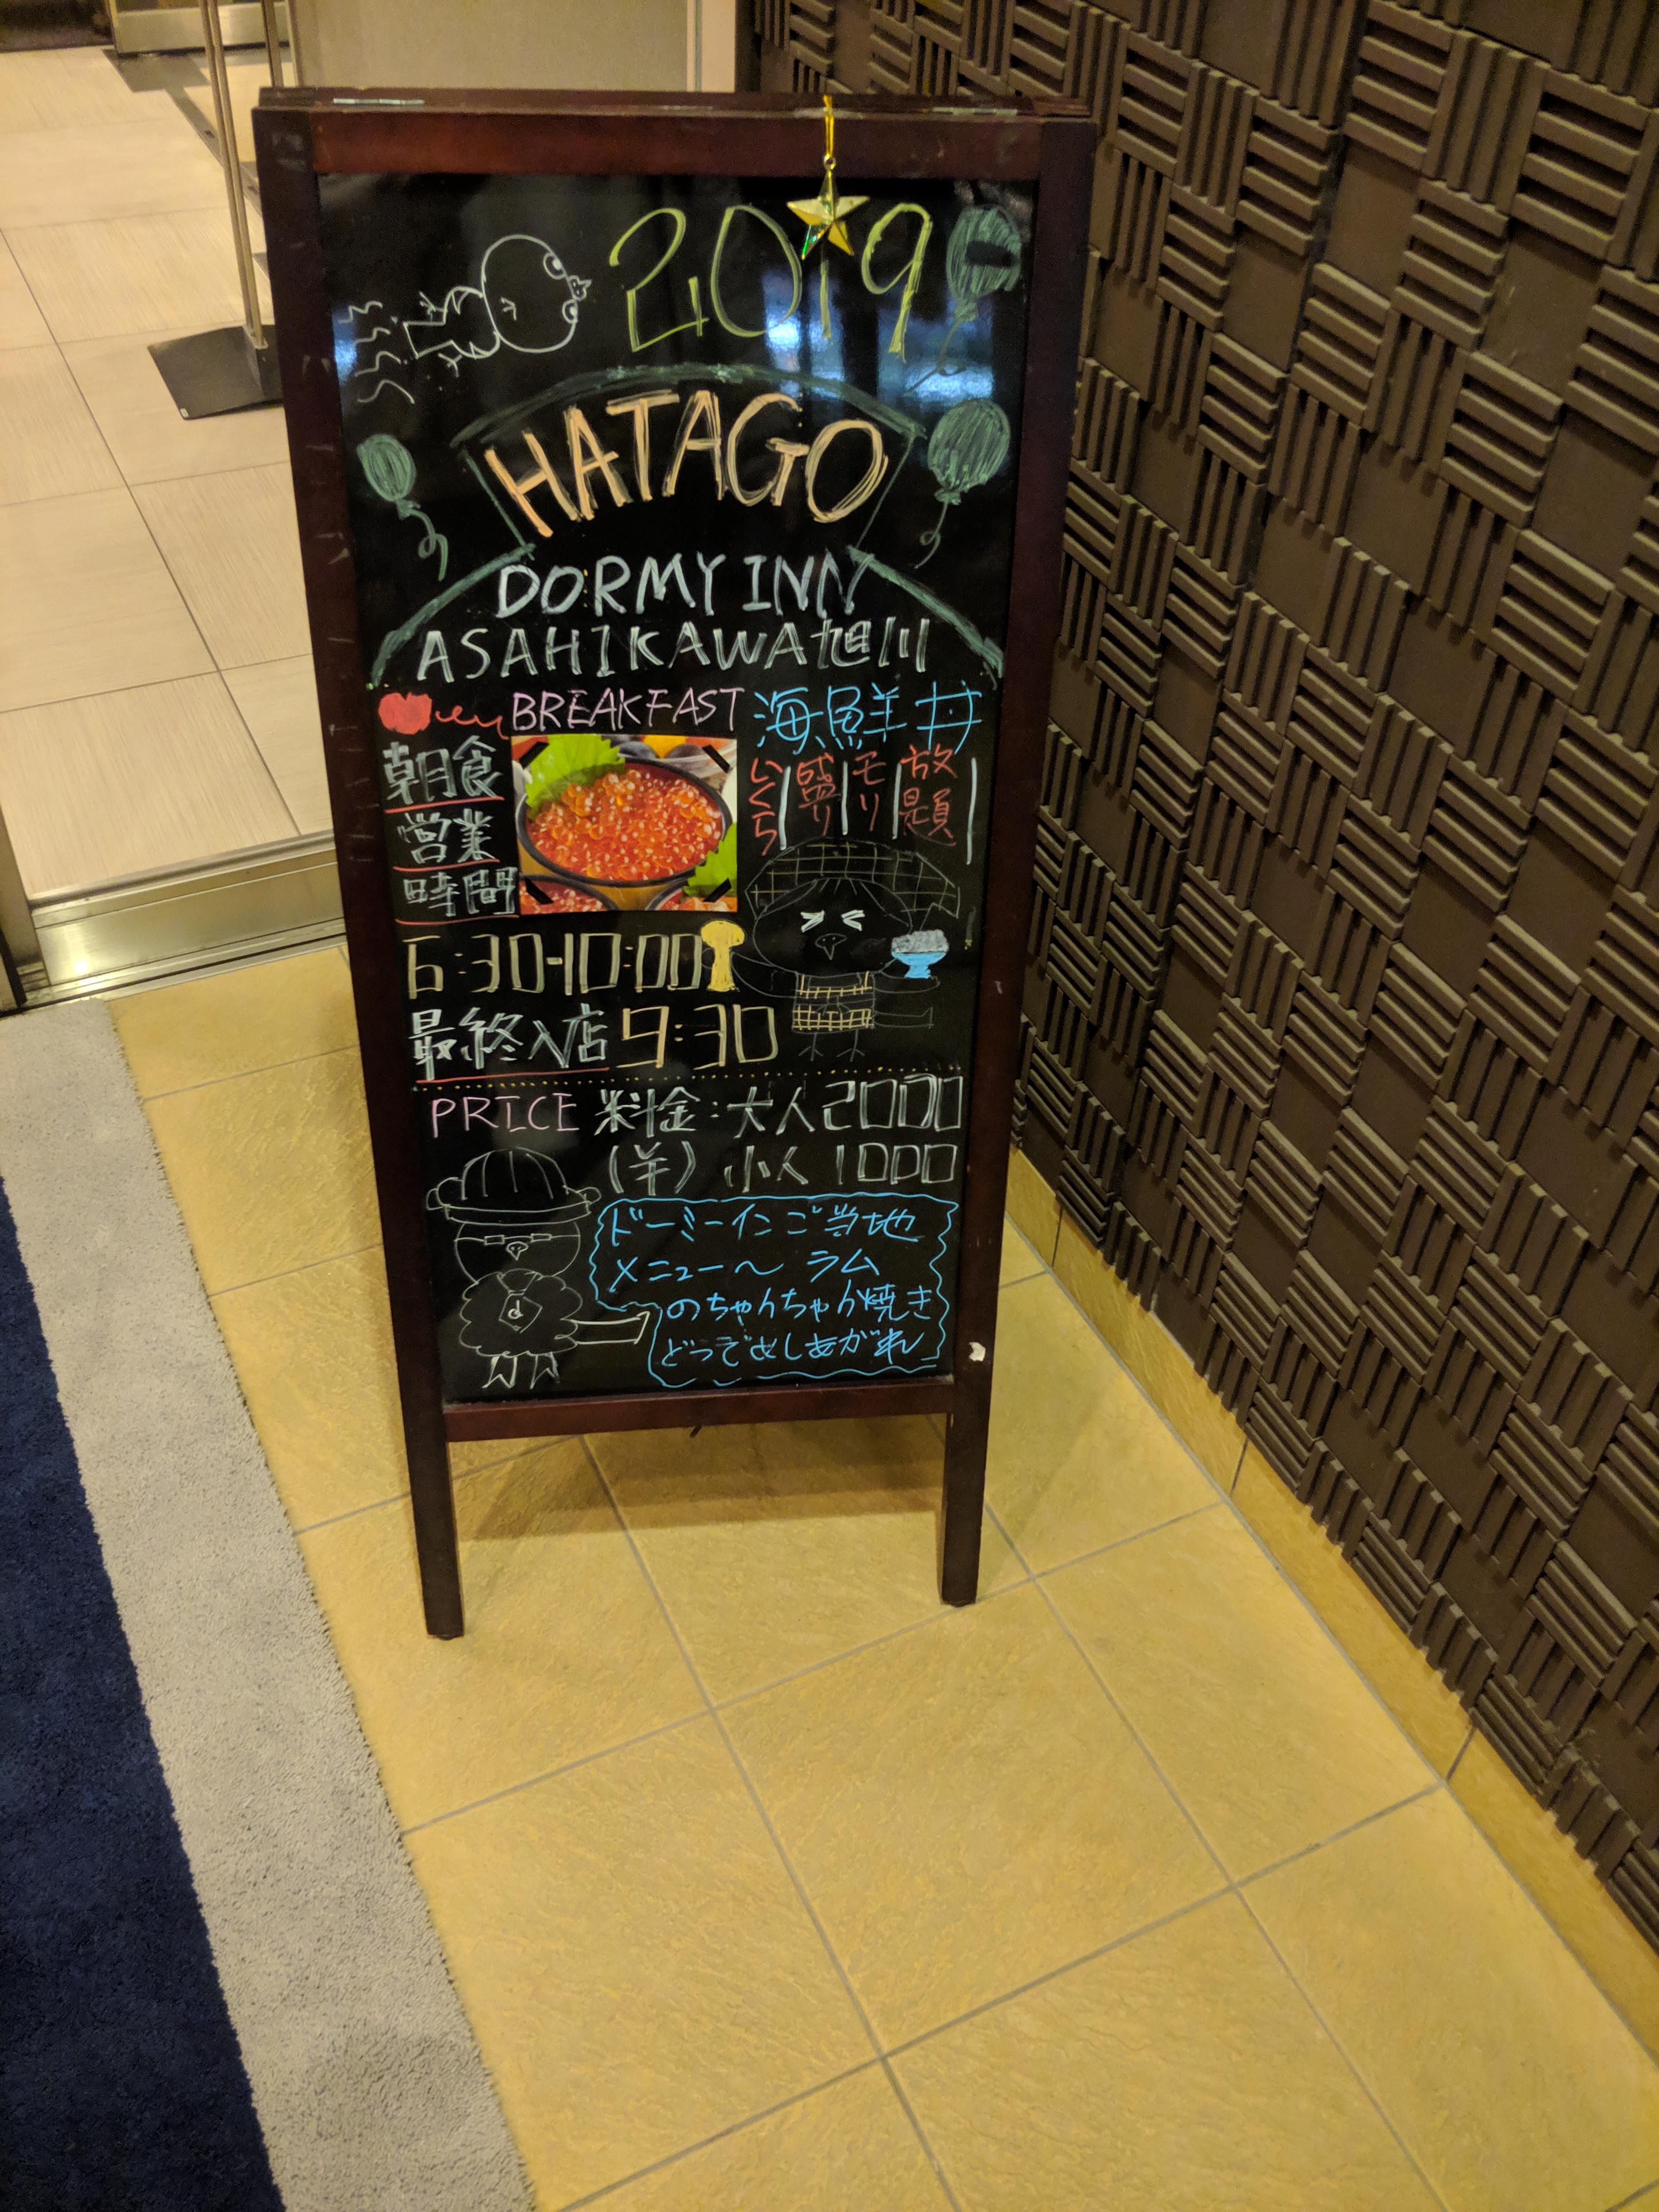 2019
HATAGO
DORMY INN
ASAHIKAWA旭川
BREAKFAST 海鮮丼
朝食
営業
時間
いくら
盛り
モリ
放題
6:30-10:00
最終入店 9:30
PRICE 料金:大人2000
(羊) 小人 1000
ドーミーインご当地
メニュー〜 ラム
のちゃんちゃん焼き
どうぞめしあがれ
d